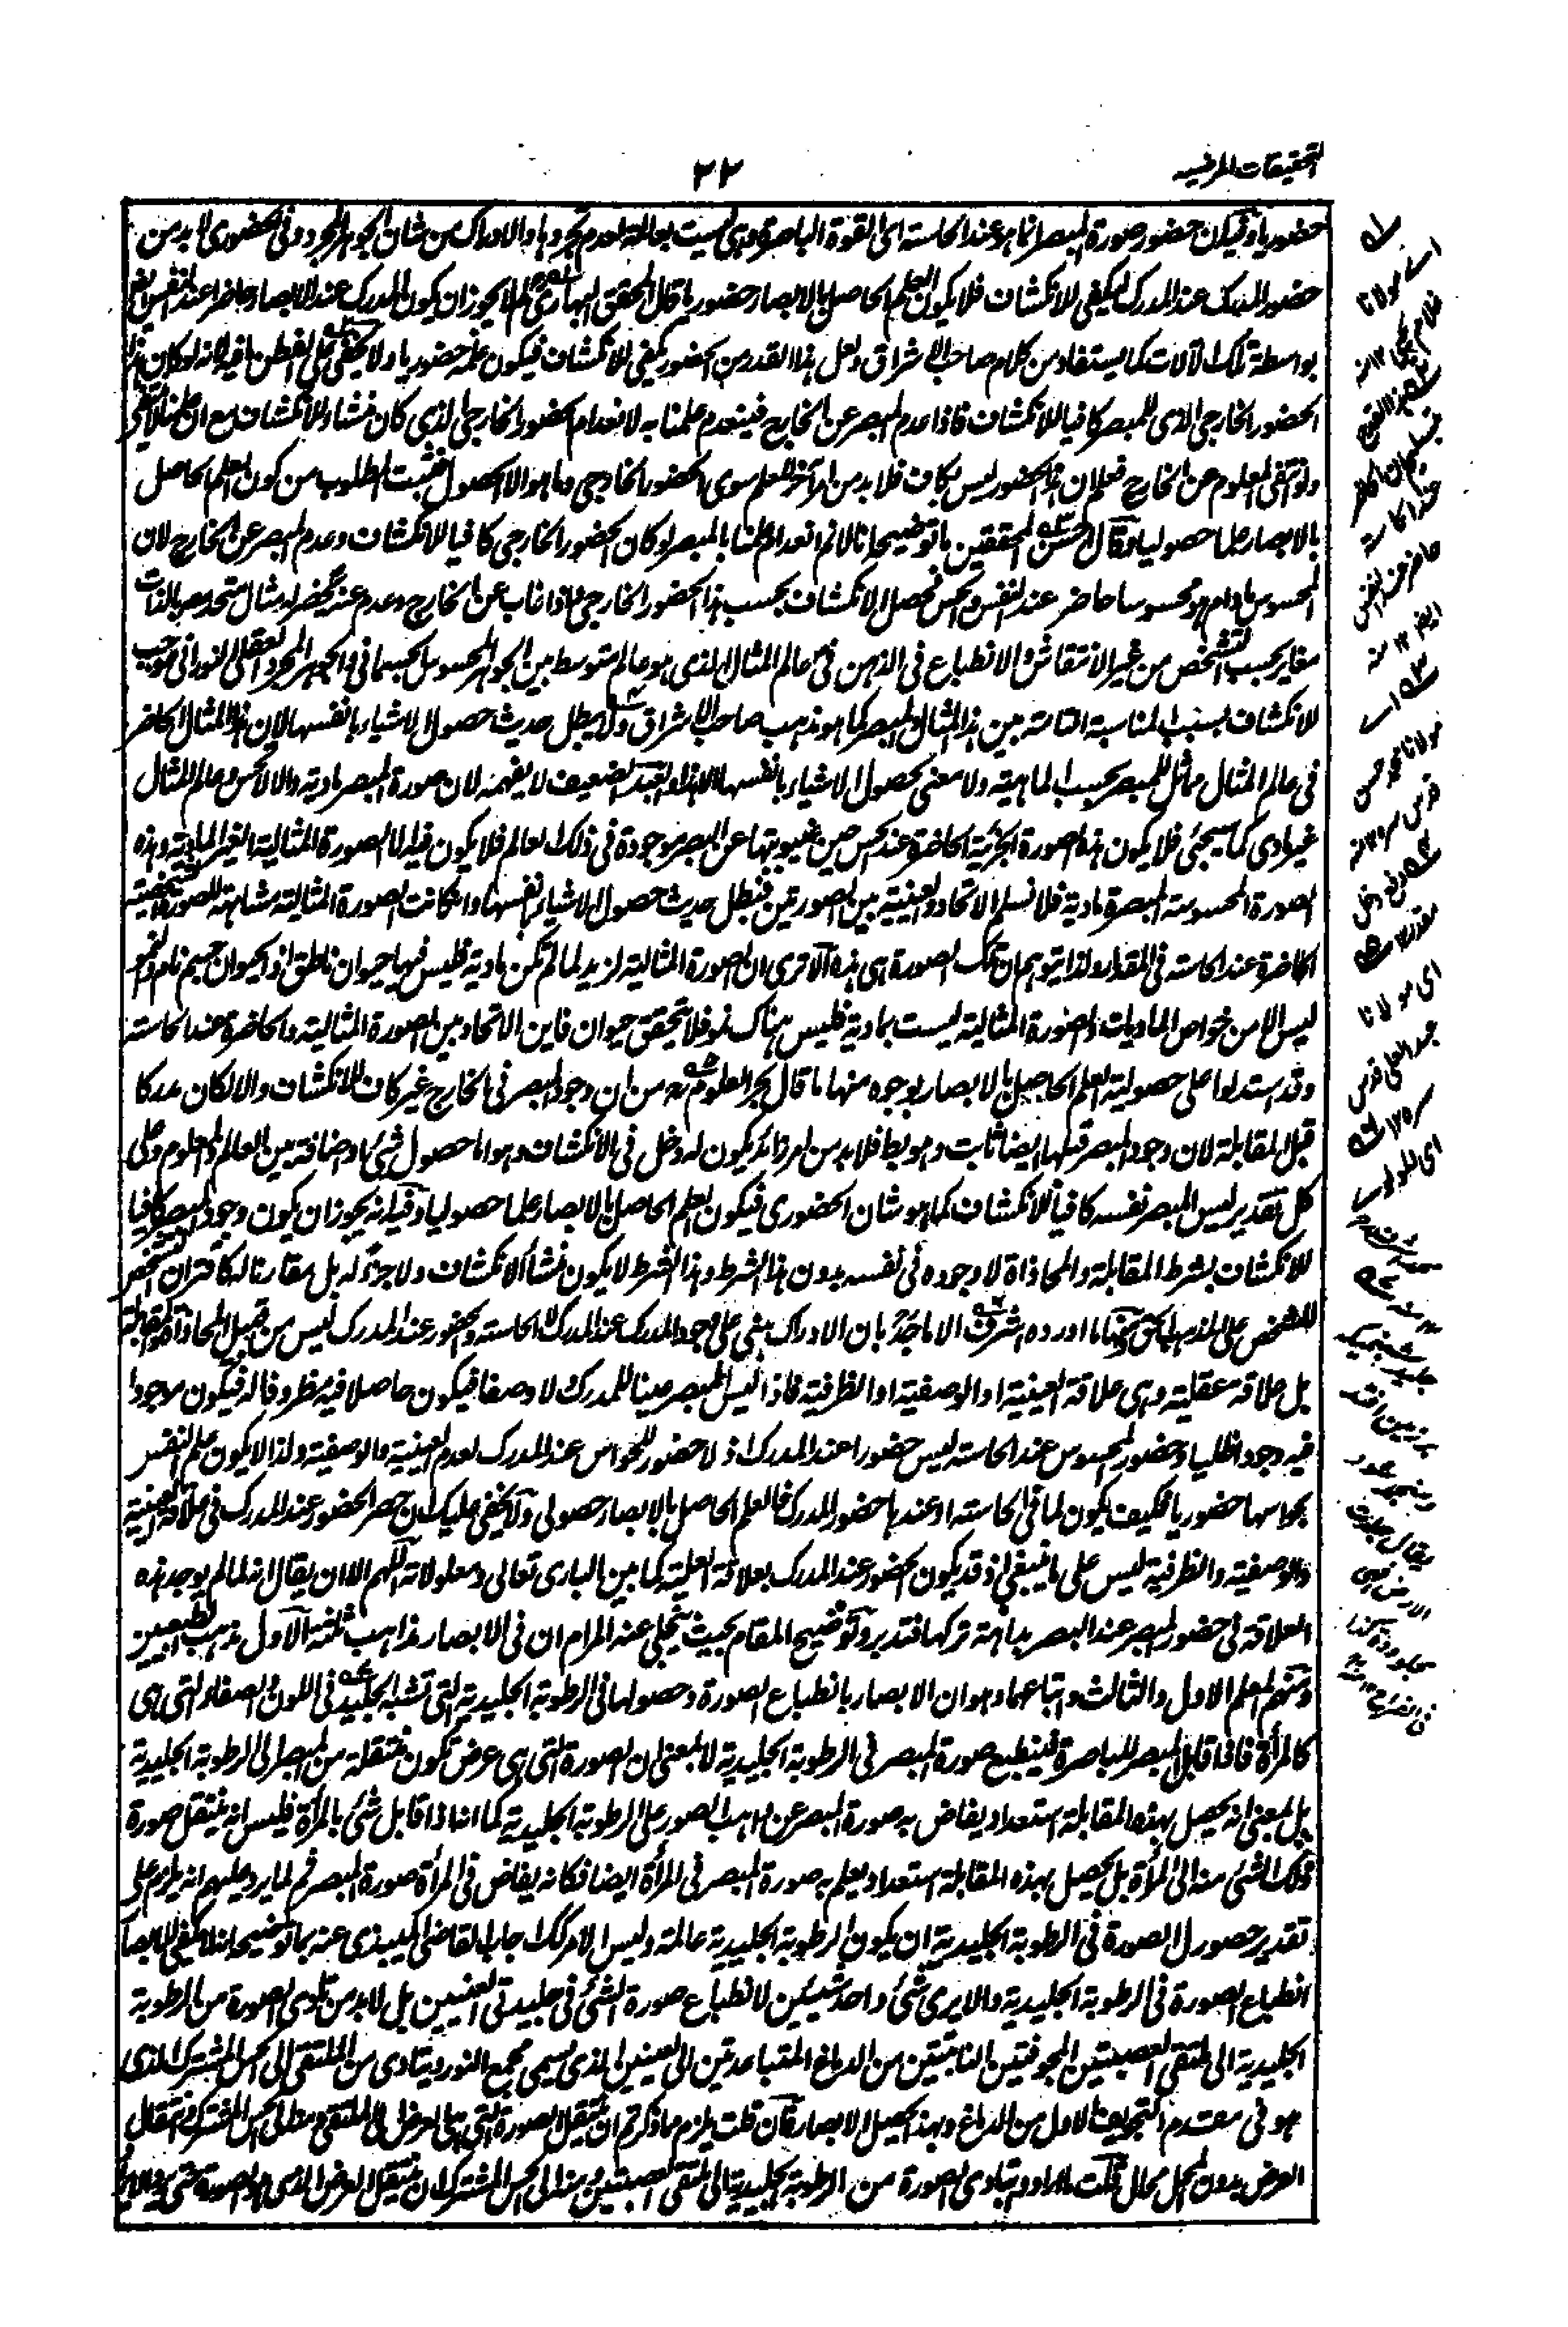 التحقيقات المرضيه
٣٢
حضوريا وقيل ان حضور صورة المبصر انما هو عند الحاسة اى القوة الباصرة وهى ليست بعالمة لعدم تجردها والادراك من شان الجوهر المجرد وفى الحضورى لا بد من
حضور المدرك عند المدرك ليكفى للانكشاف فلا يكون العلم الحاصل بالابصار حضوريا قال المحقق البهارى لم لا يجوز ان يكون المدرك عند الابصار حاضرا عند النفس
بواسطة تلك الآلات كما يستفاد من كلام صاحب الاشراق ولعل هذا القدر من الحضور يكفى للانكشاف فيكون علمه حضوريا ولا يخفى على الفطن ما فيه لانه لو كان هذا
الحضور الخارجى الذى للمبصر كافيا للانكشاف فاذا عدم المبصر عن الخارج فينعدم علمنا به لانعدام الحضور الخارجى الذى كان منشأ للانكشاف مع ان علمنا لا ينتفى
ولو انتفى المعلوم عن الخارج فعلم ان هذا الحضور ليس بكاف فلا بد من امر آخر للعلم سوى الحضور الخارجى وما هو الا الحصول فثبت المطلوب من كون العلم الحاصل
بالابصار علما حصوليا وقال احسن المحققين ما توضيحه انا لا نم انعدام علمنا بالمبصر لو كان الحضور الخارجى كافيا للانكشاف وعدم المبصر عن الخارج لان
المحسوس ما دام هو محسوسا حاضر عند النفس والحس فحصل الانكشاف بحسب هذا الحضور الخارجى واذا غاب عن الخارج وعدم عنه يحضر له مثال متحد معه بالذات
مغاير بحسب التشخص من غير الانتقاش والانطباع فى الذهن فى عالم المثال الذى هو عالم متوسط بين الجوهر المحسوس الجسمانى والجوهر المجرد العقلى النورانى فيوجب
الانكشاف بسبب المناسبة التامة بين هذا المثال والمبصر كما هو مذهب صاحب الاشراق ولا يبطل حديث حصول الاشياء بانفسها لان هذا المثال الحاضر
فى عالم المثال مماثل للمبصر بحسب الماهية ولا معنى لحصول الاشياء بانفسها الا هذا والعبد الضعيف لا يفهمه لان صورة المبصر مادية والا لا تحس وعالم المثال
غير مادى كما سيجئ فلا يكون هذه الصورة الجزئية الحاضرة عند الحس حين غيبوبتها عن البصر موجودة فى ذلك العالم فلا يكون فيه الا الصورة المثالية الغير المادية وهذه
الصورة المحسوسة المبصرة مادية فلا نسلم الاتحاد والعينية بين الصورتين فبطل حديث حصول الاشياء بانفسها وان كانت الصورة المثالية مشابهة للصورة الشخصية
الحاضرة عند الحاسة فى المقدار ولذا يتوهم ان تلك الصورة هى هذه الا ترى ان الصورة المثالية لزيد لما لم تكن مادية فليس فيها حيوان ناطق اذ الحيوان جسم نام والنمو
ليس الا من خواص الماديات والصورة المثالية ليست بمادية فليس هناك نمو فلا يتحقق حيوان فاين الاتحاد بين الصورة المثالية والحاضرة عند الحاسة
وقد استدلوا على حصولية العلم الحاصل بالابصار بوجوه منها ما قال بحر العلوم من ان وجود المبصر فى الخارج غير كاف للانكشاف والا لكان مدركا
قبل المقابلة لان وجود المبصر قبلها ايضا ثابت وهو بط فلا بد من امر زائد يكون له دخل فى الانكشاف وهو اما حصول شئ او اضافة بين العالم والمعلوم وعلى
كل تقدير ليس المبصر نفسه كافيا للانكشاف كما هو شان الحضورى فيكون العلم الحاصل بالابصار علما حصوليا وفيه انه يجوز ان يكون وجود المبصر كافيا
للانكشاف بشرط المقابلة والمحاذاة لا وجوده فى نفسه بدون هذا الشرط وهذا الشرط لا يكون منشأ الانكشاف ولا جزءً له بل مقارنا له كاقتران التشخص
للشخص على المذهب الحق ومنها ما اورده اشرف الاماجد بان الادراك يبنى على وجود المدرك عند المدرك لا الحاسة والحضور عند المدرك ليس من قبيل المحاذاة والمقابلة
بل علاقة عقلية وهى علاقة العينية او الوصفية او الظرفية فاذا ليس المبصر عينا للمدرك لا وصفا فيكون حاصلا فيه مظروفا له فيكون موجودا
فيه وجودا ظليا وحضور المحسوس عند الحاسة ليس حضورا عند المدرك اذ لا حضور للحواس عند المدرك لعدم العينية والوصفية ولذا لا يكون علم النفس
بحواسها حضوريا فكيف يكون لما فى الحاسة او عندها حضور المدرك فالعلم الحاصل بالابصار حصولى ولا يخفى عليك ان حصر الحضور عند المدرك فى علاقة العينية
والوصفية والظرفية ليس على ما ينبغى اذ قد يكون الحضور عند المدرك بعلاقة العلية كما بين البارى تعالى ومعلولاته اللهم الا ان يقال انه لما لم يوجد هذه
العلاقة فى حضور المبصر عند البصر بداهة تركها فتدبر وتوضيح المقام بحيث ينجلى عنه المرام ان فى الابصار مذاهب ثلثة الاول مذهب الطبعيين
ومنهم المعلم الاول والثالث واتباعهما وهو ان الابصار بانطباع الصورة وحصولها فى الرطوبة الجليدية التى تشبه الجليد فى اللون والصفاء والتى هى
كالمرأة فاذا قابل المبصر للباصرة فينطبع صورة المبصر فى الرطوبة الجليدية لا بمعنى ان الصورة التى هى عرض تكون منتقلة من المبصر الى الرطوبة الجليدية
بل بمعنى انه يحصل بهذه المقابلة استعداد يفاض به صورة المبصر عن واهب الصور على الرطوبة الجليدية كما انا اذا قابل شئ بالمرأة فليس انه ينتقل صورة
ذلك الشئ منه الى المرأة بل يحصل بهذه المقابلة استعداد يعلم به صورة المبصر فى المرأة ايضا فكانه يفاض فى المرأة صورة المبصر ثم لما يرد عليهم انه يلزم على
تقدير حصول الصورة فى الرطوبة الجليدية ان يكون الرطوبة الجليدية عالمة وليس الامر كذلك اجاب القاضى الميبذى عنه بما توضيحه انه لا يكفى للابصار
انطباع الصورة فى الرطوبة الجليدية والا يرى شئ واحد شيئين لانطباع صورة الشئ فى جليدتى العينين بل لا بد من تأدى الصورة من الرطوبة
الجليدية الى ملتقى العصبتين المجوفتين النابتتين من الدماغ المتباعدتين الى العينين الذى يسمى مجمع النور ويتادى من الملتقى الى الحس المشترك الذى
هو فى مقدم التجويف الاول من الدماغ وبهذا يحصل الابصار فان قلت يلزم مما ذكرتم ان ينتقل الصورة التى هى العرض الى الملتقى ومنه الى الحس المشترك وانتقال
العرض بدون المحل محال قلت ما ارادوا بتادى الصورة من الرطوبة الجليدية الى ملتقى العصبتين ومنه الى الحس المشترك ان ينتقل العرض الذى هو الصورة حتى يرد
اى مولانا
اى مولانا
عبد العلى